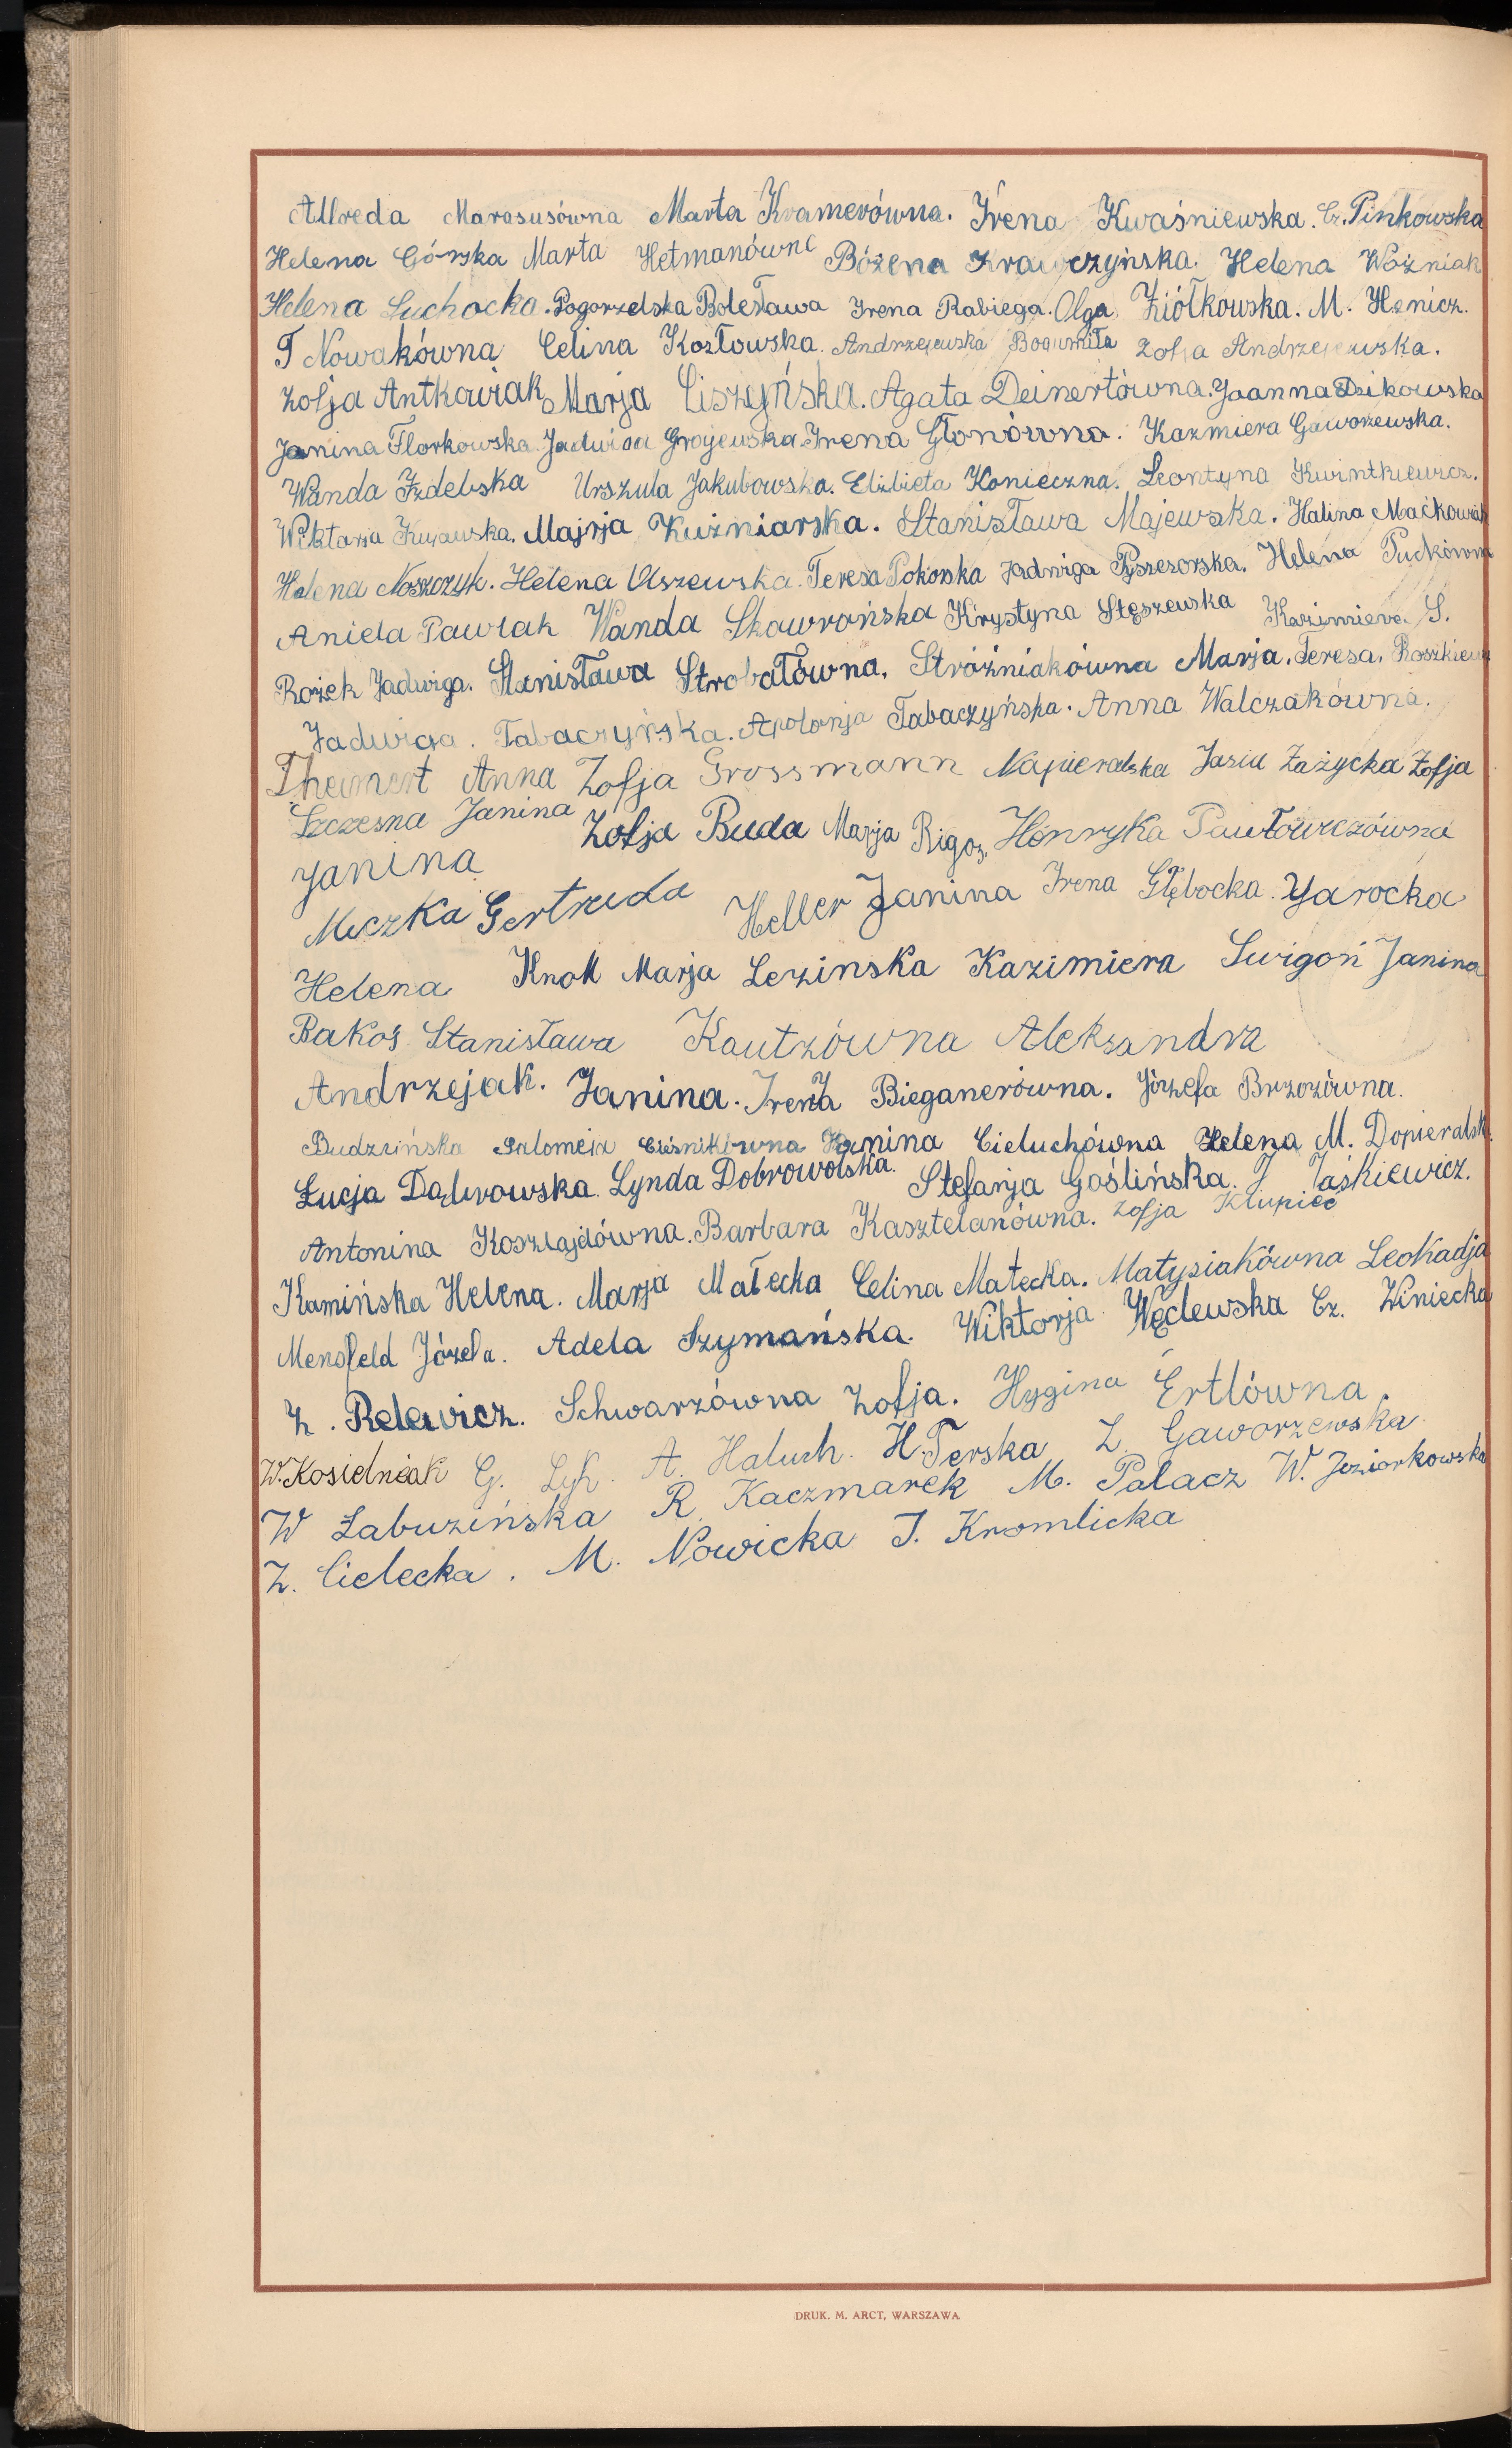 Alfreda Marasusówna Marta Kramerówna. Irena Kwaśniewska. Cz. Pinkowska
Helena Górska Marta Hetmanówna Bożena Krawczyńska. Helena Woźniak
Helena Suchocka. Pogorzelska Bolesława Irena Rabiega. Olga Ziółkowska. M. Henicz.
T Nowakówna Celina Kozłowska. Andrzejewska Bogumiła Zofja Andrzejewska.
Zofja Antkowiak Marja Ciszyńska. Agata Deinertówna. Joanna Dzikowska
Janina Florkowska. Jadwiga Grajewska Irena Głonówna. Kazmiera Gaworzewska.
Wanda Izdebska Urszula Jakubowska. Elżbieta Konieczna. Leontyna Kwintkiewicz.
Wiktarja Kujawska. Majrja Kuźniarska. Stanisława Majewska. Halina Maćkowiak
Helena Noszczyk. Helena Olszewska. Teresa Pokorska Jadwiga Helena Puckówna
Aniela Pawlak Wanda Skawrońska Krystyna Stęszewska Kazimiera S.
Rożek Jadwiga. Stanisława Strobałówna. Stróźniakówna Marja. Teresa. Roszkiewicz
Jadwiga. Tabaczyńska. Apolonja Tabaczyńska. Anna Walczakówna.
Anna Zofja Grossmann Napieralska Jasia Zażycka Zofja
Szczesna Janina Zofja Buda Marja Rigoz, Henryka Pawłowiczówna
Janina
Miczka Gertruda Heller Janina Irena Głębocka. Jarocka
Helena Knoll Marja Lezinska Kazimiera Swigoń Janina
Bakoś Stanisława Kautzówna Aleksandra
Andrzejak. Janina. Irena Bieganerówna. Józefa Brzozówna.
Budzińska Salomeja Cieśnikówna Janina Cieluchówna Helena M. Dopieralsk.
Łucja Dąbrowska. Lynda Dobrowolska. Stefanja Goślińska. J Jaśkiewicz.
Antonina Koszlajdówna. Barbara Kasztelanówna. Zofja Klupieć
Kamińska Helena. Marja Małecka Celina Małecka. Matysiakówna Leokadja
Mensfeld Józefa. Adela Szymańska. Wiktorja Węclewska Cz. Winiecka
Z. Relewicz. Schwarzówna Zofja. Hygina Ertlówna.
W. Kosidniak G. Łyk. A. Haluch. H. Terska Z. Gaworzewska
W Łabuzińska R. Kaczmarek M. Palacz W. Jeziorkowska
Z. Cielecka. M. Nowicka J. Kromlicka
DRUK. M. ARCT, WARSZAWA